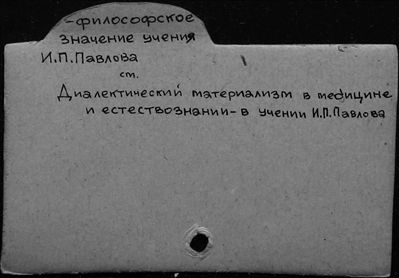 -философское
значение учения
И.П.Павлова
см.
Диалектический материализм в медицине
и естествознании-в учении И.П.Павлова